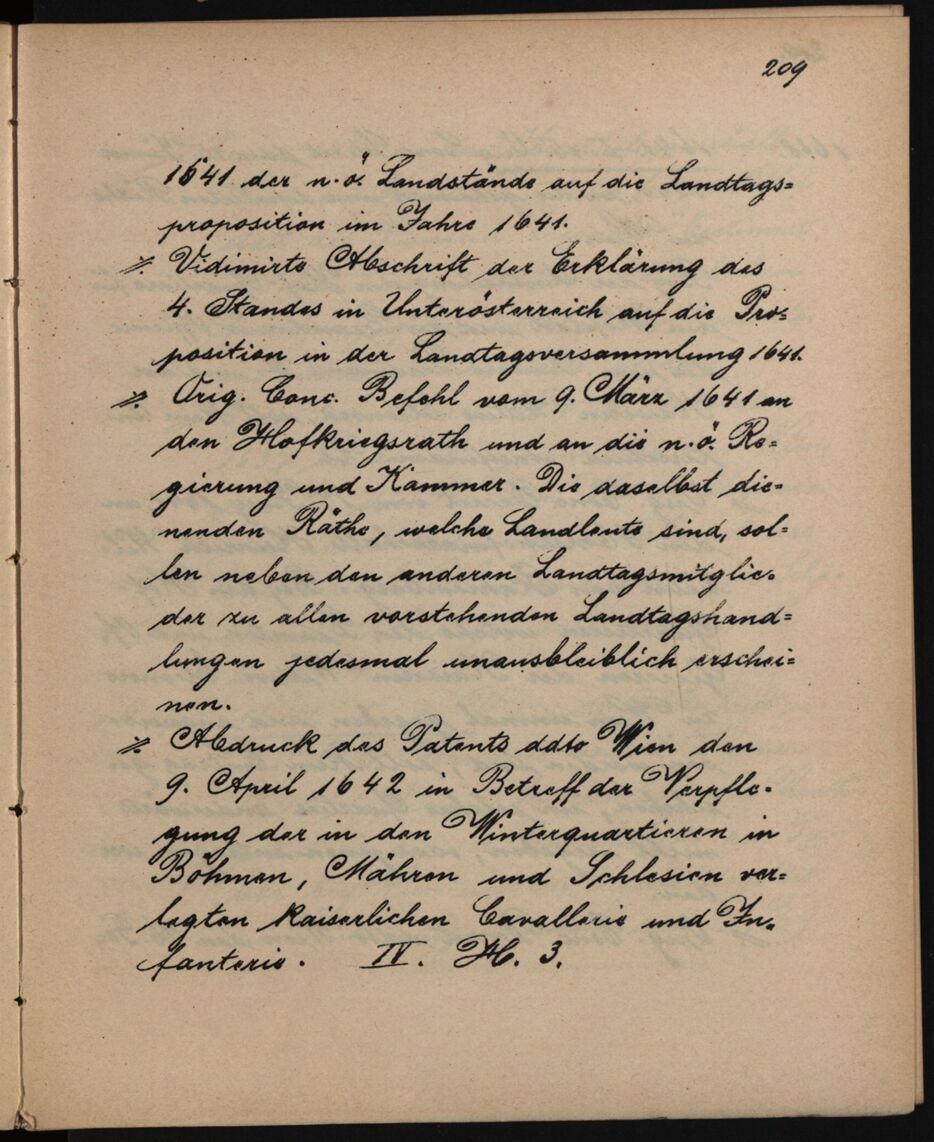 209
1641 der n.ö. Landstände auf die Landtags=
proposition im Jahre 1641.
⁒ Vidimirte Abschrift der Erklärung des
4. Standes in Unterösterreich auf die Pro=
position in der Landtagsversammlung 1641.
⁒ Orig. Conc. Befehl vom 9. März 1641 an
den Hofkriegsrath und an die n.ö. Re=
gierung und Kammer. Die daselbst die=
nenden Räthe, welche Landleute sind, sol=
len neben den anderen Landtagsmitglie=
der zu allen vorstehenden Landtagshand=
lungen jedesmal unausbleiblich erschei=
nen.
⁒ Abdruck des Patents ddto Wien den
9. April 1642 in Betreff der Verpfle=
gung der in den Winterquartieren in
Böhmen, Mähren und Schlesien ver=
legten kaiserlichen Cavallerie und In=
fanterie. IV. H. 3.